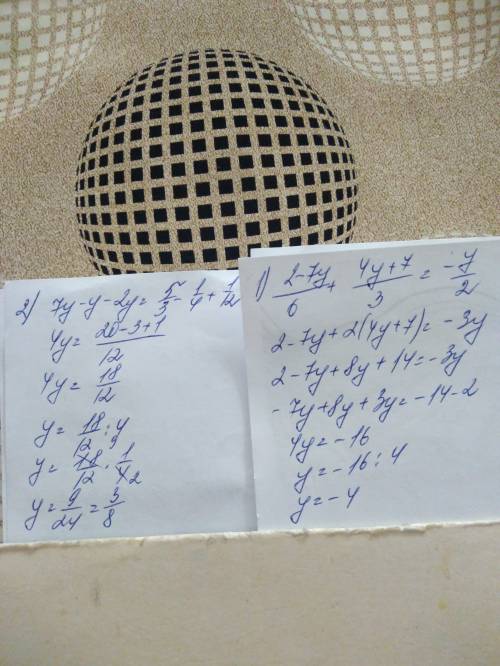 2) 7y-y-2y=5/3-1/4+1/12
4y=(20-3+1)/12
4y=18/12
y=18/12:4
y=18/12·1/4
y=9/24=3/8
1) (2-7y)/6+(4y+7)/3=-y/2
2-7y+2(4y+7)=-3y
2-7y+8y+14=-3y
-7y+8y+3y=-14-2
4y=-16
y=-16:4
y=-4